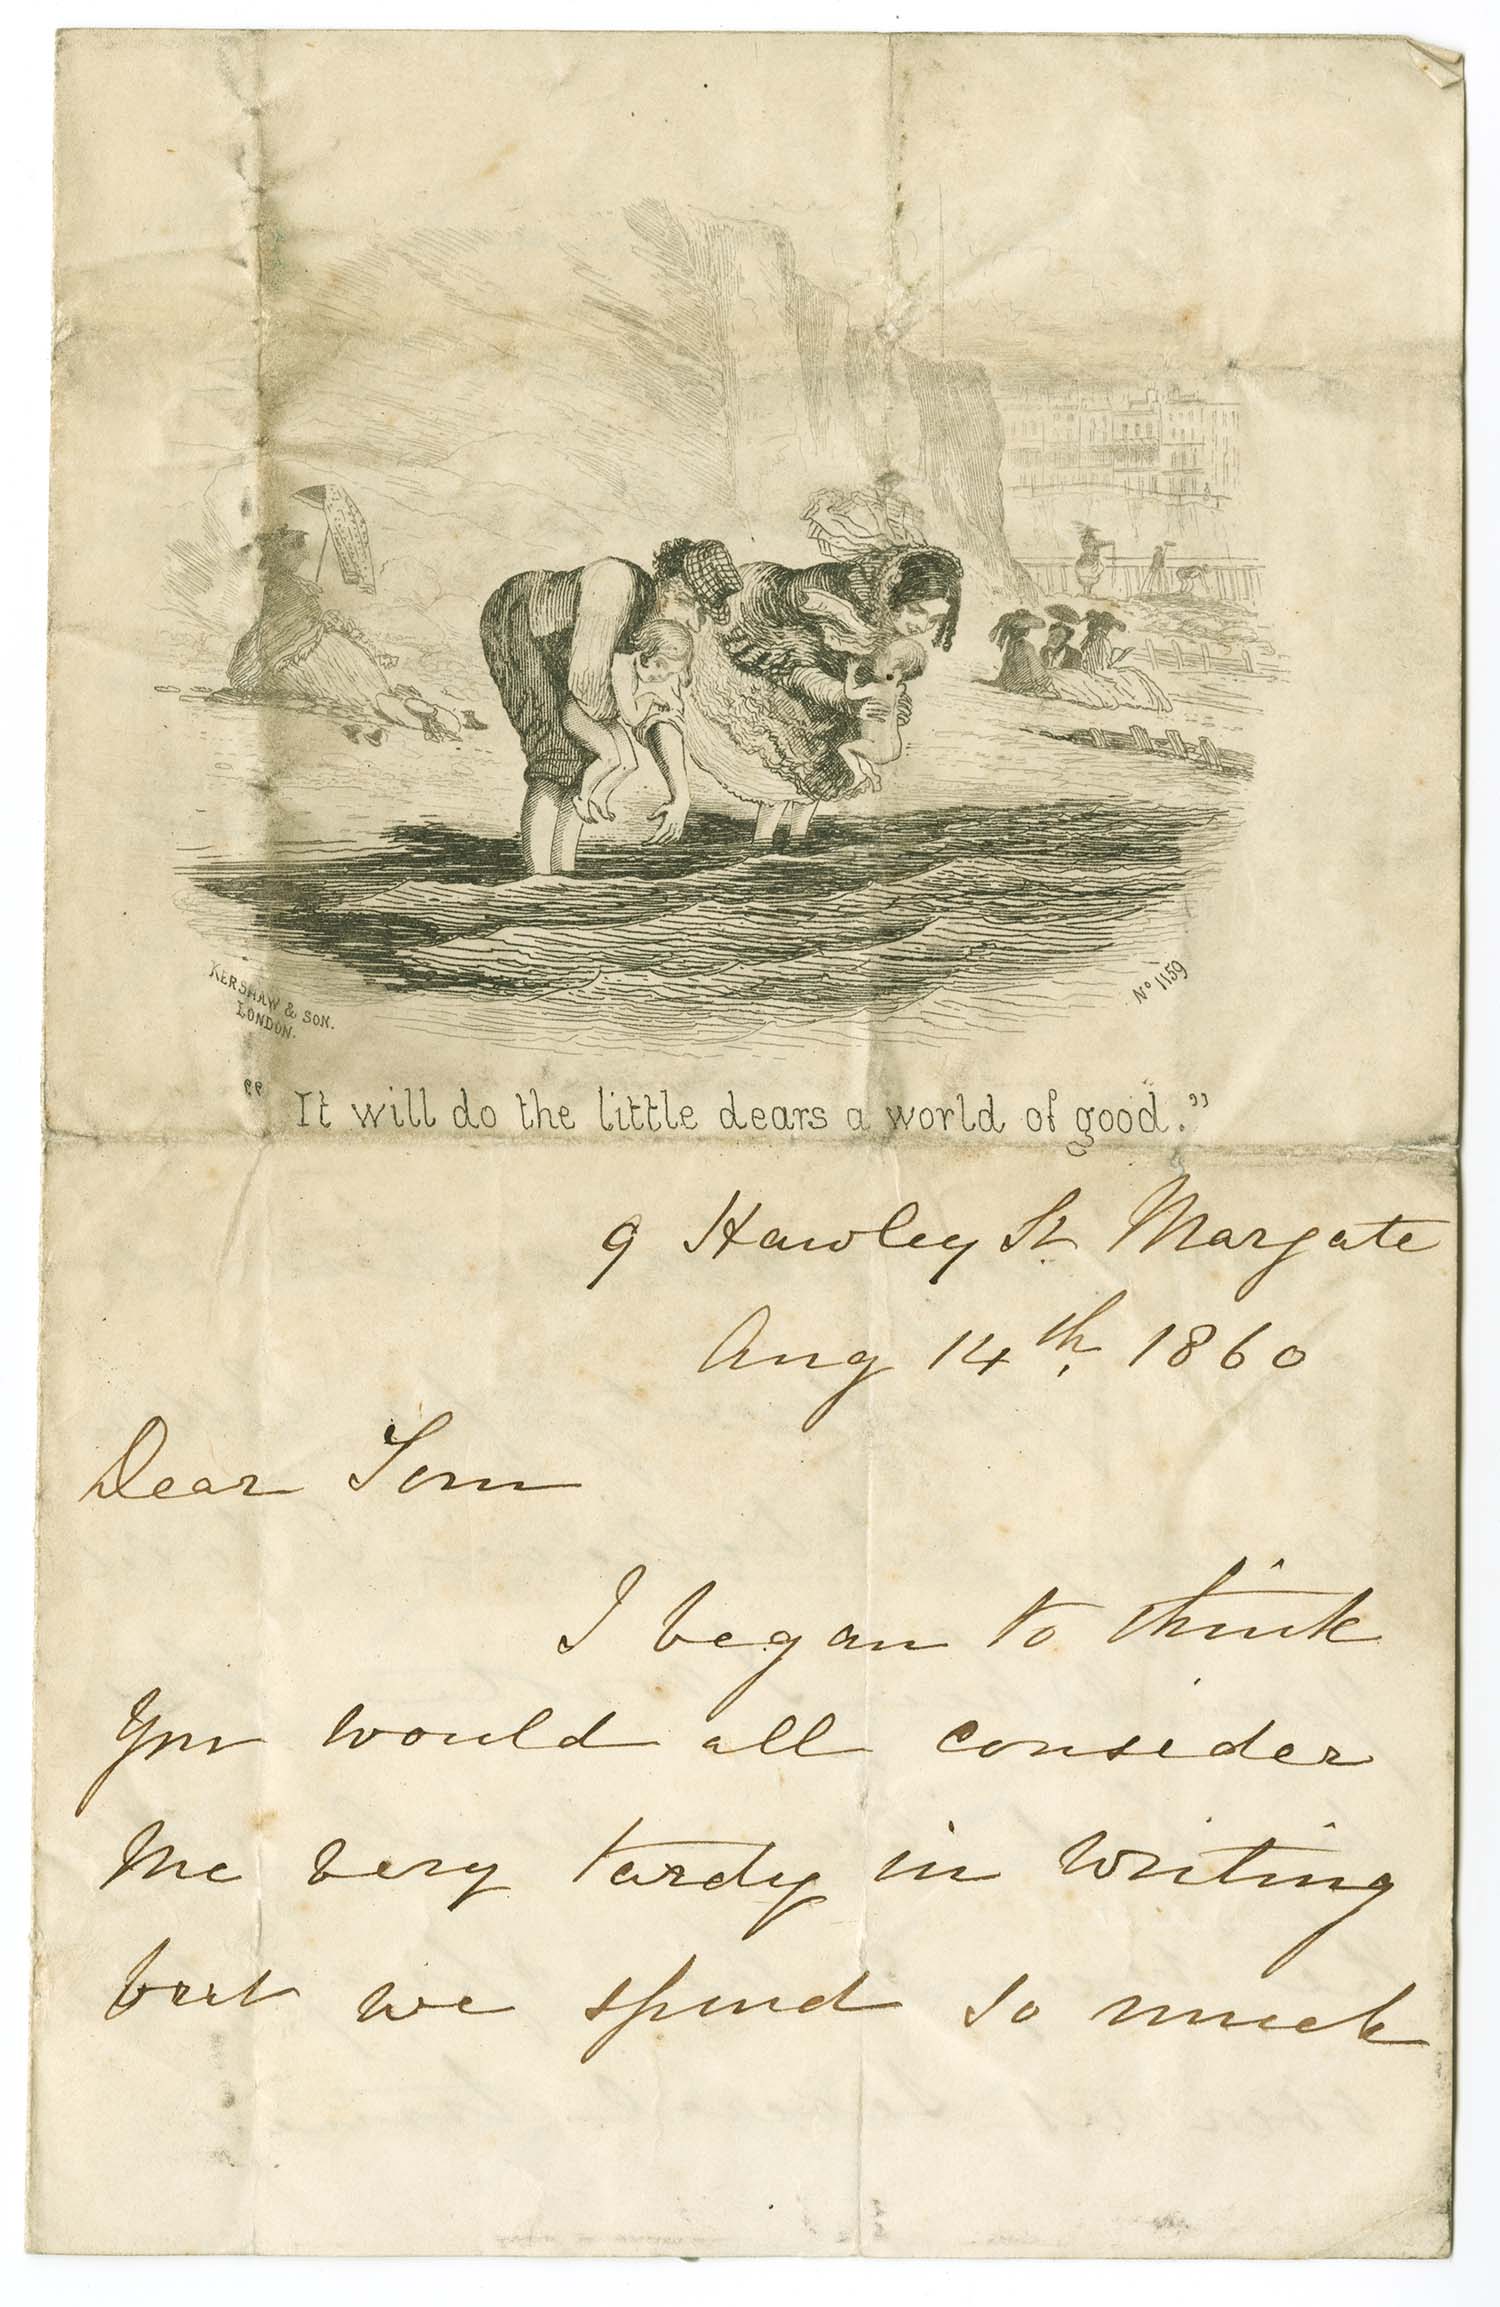 KERSHAW & SON.
LONDON.
No 1159
“ It will do the little dears a world of good.”
9 Hawley St. Margate
Aug 14th. 1860
Dear Tom
I began to think
you would all consider
me very tardy in writing
but we spend so much